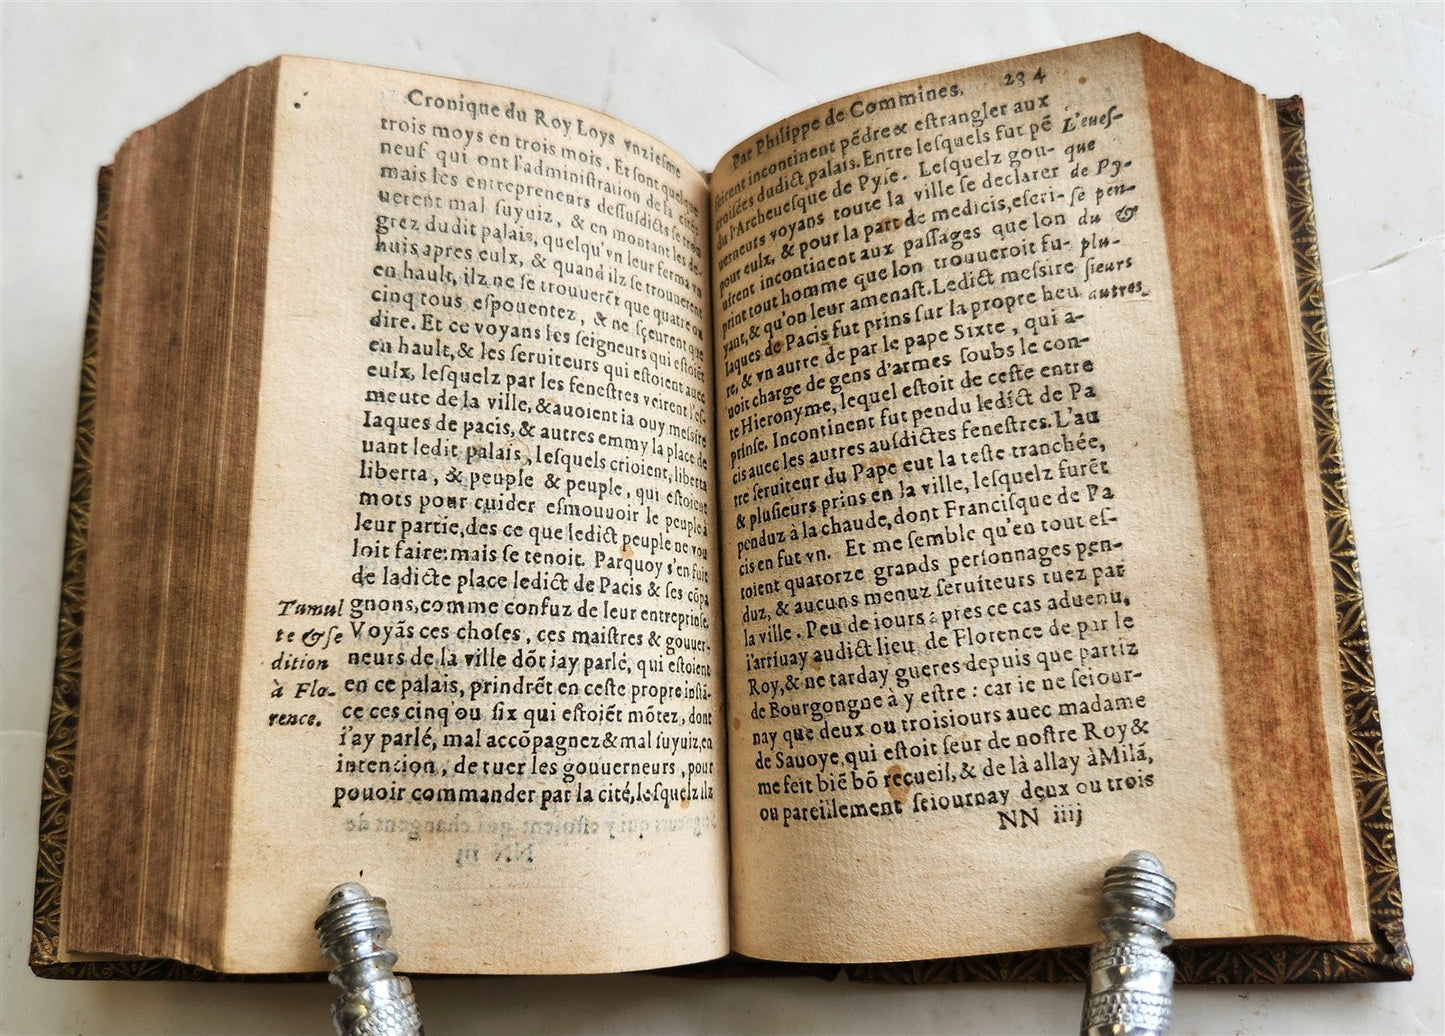 Cronique du Roy Loys vnziesme
trois moys en trois mois. Et sont quelque
neuf qui ont l'administration de la cité,
mais les entrepreneurs dessusdicts se trou
uerent mal suyuiz, & en montant les de-
grez dudit palais, quelqu'vn leur ferma vn
huis apres eulx, & quand ilz se trouuerent
en hault, ilz ne se trouuerēt que quatre ou
cinq tous espouentez, & ne sçeurent que
dire. Et ce voyans les seigneurs qui estoiēt
en hault, & les seruiteurs qui estoient auec
eulx, lesquelz par les fenestres veirent l'es-
meute de la ville, & auoient ia ouy messire
Iaques de pacis, & autres emmy la place de
uant ledit palais, lesquels crioient, liberta
liberta, & peuple & peuple, qui estoient
mots pour cuider esmouuoir le peuple à
leur partie, des ce que ledict peuple ne vou
loit faire: mais se tenoit. Parquoy s'en fuit
de ladicte place ledict de Pacis & ses cōpa
gnons, comme confuz de leur entreprinse.
Voyās ces choses, ces maistres & gouuer-
neurs de la ville dōt iay parlé, qui estoient
en ce palais, prindrēt en ceste propre instā-
ce ces cinq ou six qui estoiēt mōtez, dont
i'ay parlé, mal accōpagnez & mal suyuiz, en
intention, de tuer les gouuerneurs, pour
pouoir commander par la cité, lesquelz ilz
Tumul
te & se
dition
à Flo-
rence.
Par Philippe de Commines. 234
feirent incontinent pēdre & estrangler aux
croisées dudict palais. Entre lesquels fut pē
du l'Archeuesque de Pyse. Lesquelz gou-
uerneuts voyans toute la ville se declarer
pour eulx, & pour la part de medicis, escri-
uirent incontinent aux passages que lon
print tout homme que lon trouueroit fu-
yant, & qu'on leur amenast. Ledict messire
Iaques de Pacis fut prins sur la propre heu
re, & vn autre de par le pape Sixte, qui a-
uoit charge de gens d'armes soubs le con-
te Hieronyme, lequel estoit de ceste entre
prinse. Incontinent fut pendu ledict de Pa
cis auec les autres ausdictes fenestres. L'au
tre seruiteur du Pape eut la teste tranchée,
& plusieurs prins en la ville, lesquelz furēt
penduz à la chaude, dont Francisque de Pa
cis en fut vn. Et me semble qu'en tout es-
toient quatorze grands personnages pen-
duz, & aucuns menuz seruiteurs tuez par
la ville. Peu de iours apres ce cas aduenu,
i'arriuay audict lieu de Florence de par le
Roy, & ne tarday gueres depuis que partiz
de Bourgongne à y estre: car ie ne seiour-
nay que deux ou trois iours auec madame
de Sauoye, qui estoit seur de nostre Roy &
me feit biē bō recueil, & de là allay à Milā,
ou pareillement seiournay deux ou trois
NN iiij
L'eues-
que
de Py-
se pen-
du &
plu-
sieurs
autres.